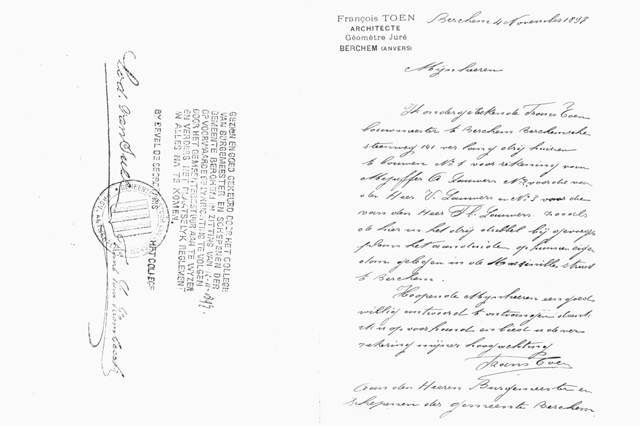 François TOEN
ARCHITECTE
Géomètre Juré
BERCHEM (ANVERS)
Berchem 4 November 1897
Mijnheeren
Ik ondergeteekende Frans Toen
bouwmeester te Berchem Berchemsche
steenweg 141 verlang drij huizen
te bouwen No 1 voor rekening van
A. Lauwers No 2 voor die van
den Heer V. Lauwers No 3 voor die
van den Heer Lauwers zooals
als hier in het drij dubbel bij
plan het aanduiden op hunnen eigen
dom gelegen in de straat
te Berchem.
Hoopende Mijnheeren een goed
willig antwoord te ontvangen dank
ik u op voorhand en bied u de ver
zekering mijner hoogachting
Frans Toen
Aan den Heeren Burgemeester en
Schepenen der gemeente Berchem
GEZIEN EN GOED GEKEURD DOOR HET COLLEGE
VAN BURGEMEESTER EN SCHEPENEN DER
GEMEENTE BERCHEM IN ZITTING VAN
OP VOORWAARDE DE LYNRICHTING TE VOLGEN
DOOR HET GEMEENTEBESTUUR AAN TE WYZEN
EN VERDERS HET PLAATSELYK REGLEMENT
IN ALLES NA TE KOMEN.
BY BEVEL DE SECRETARIS
HET COLLEGE